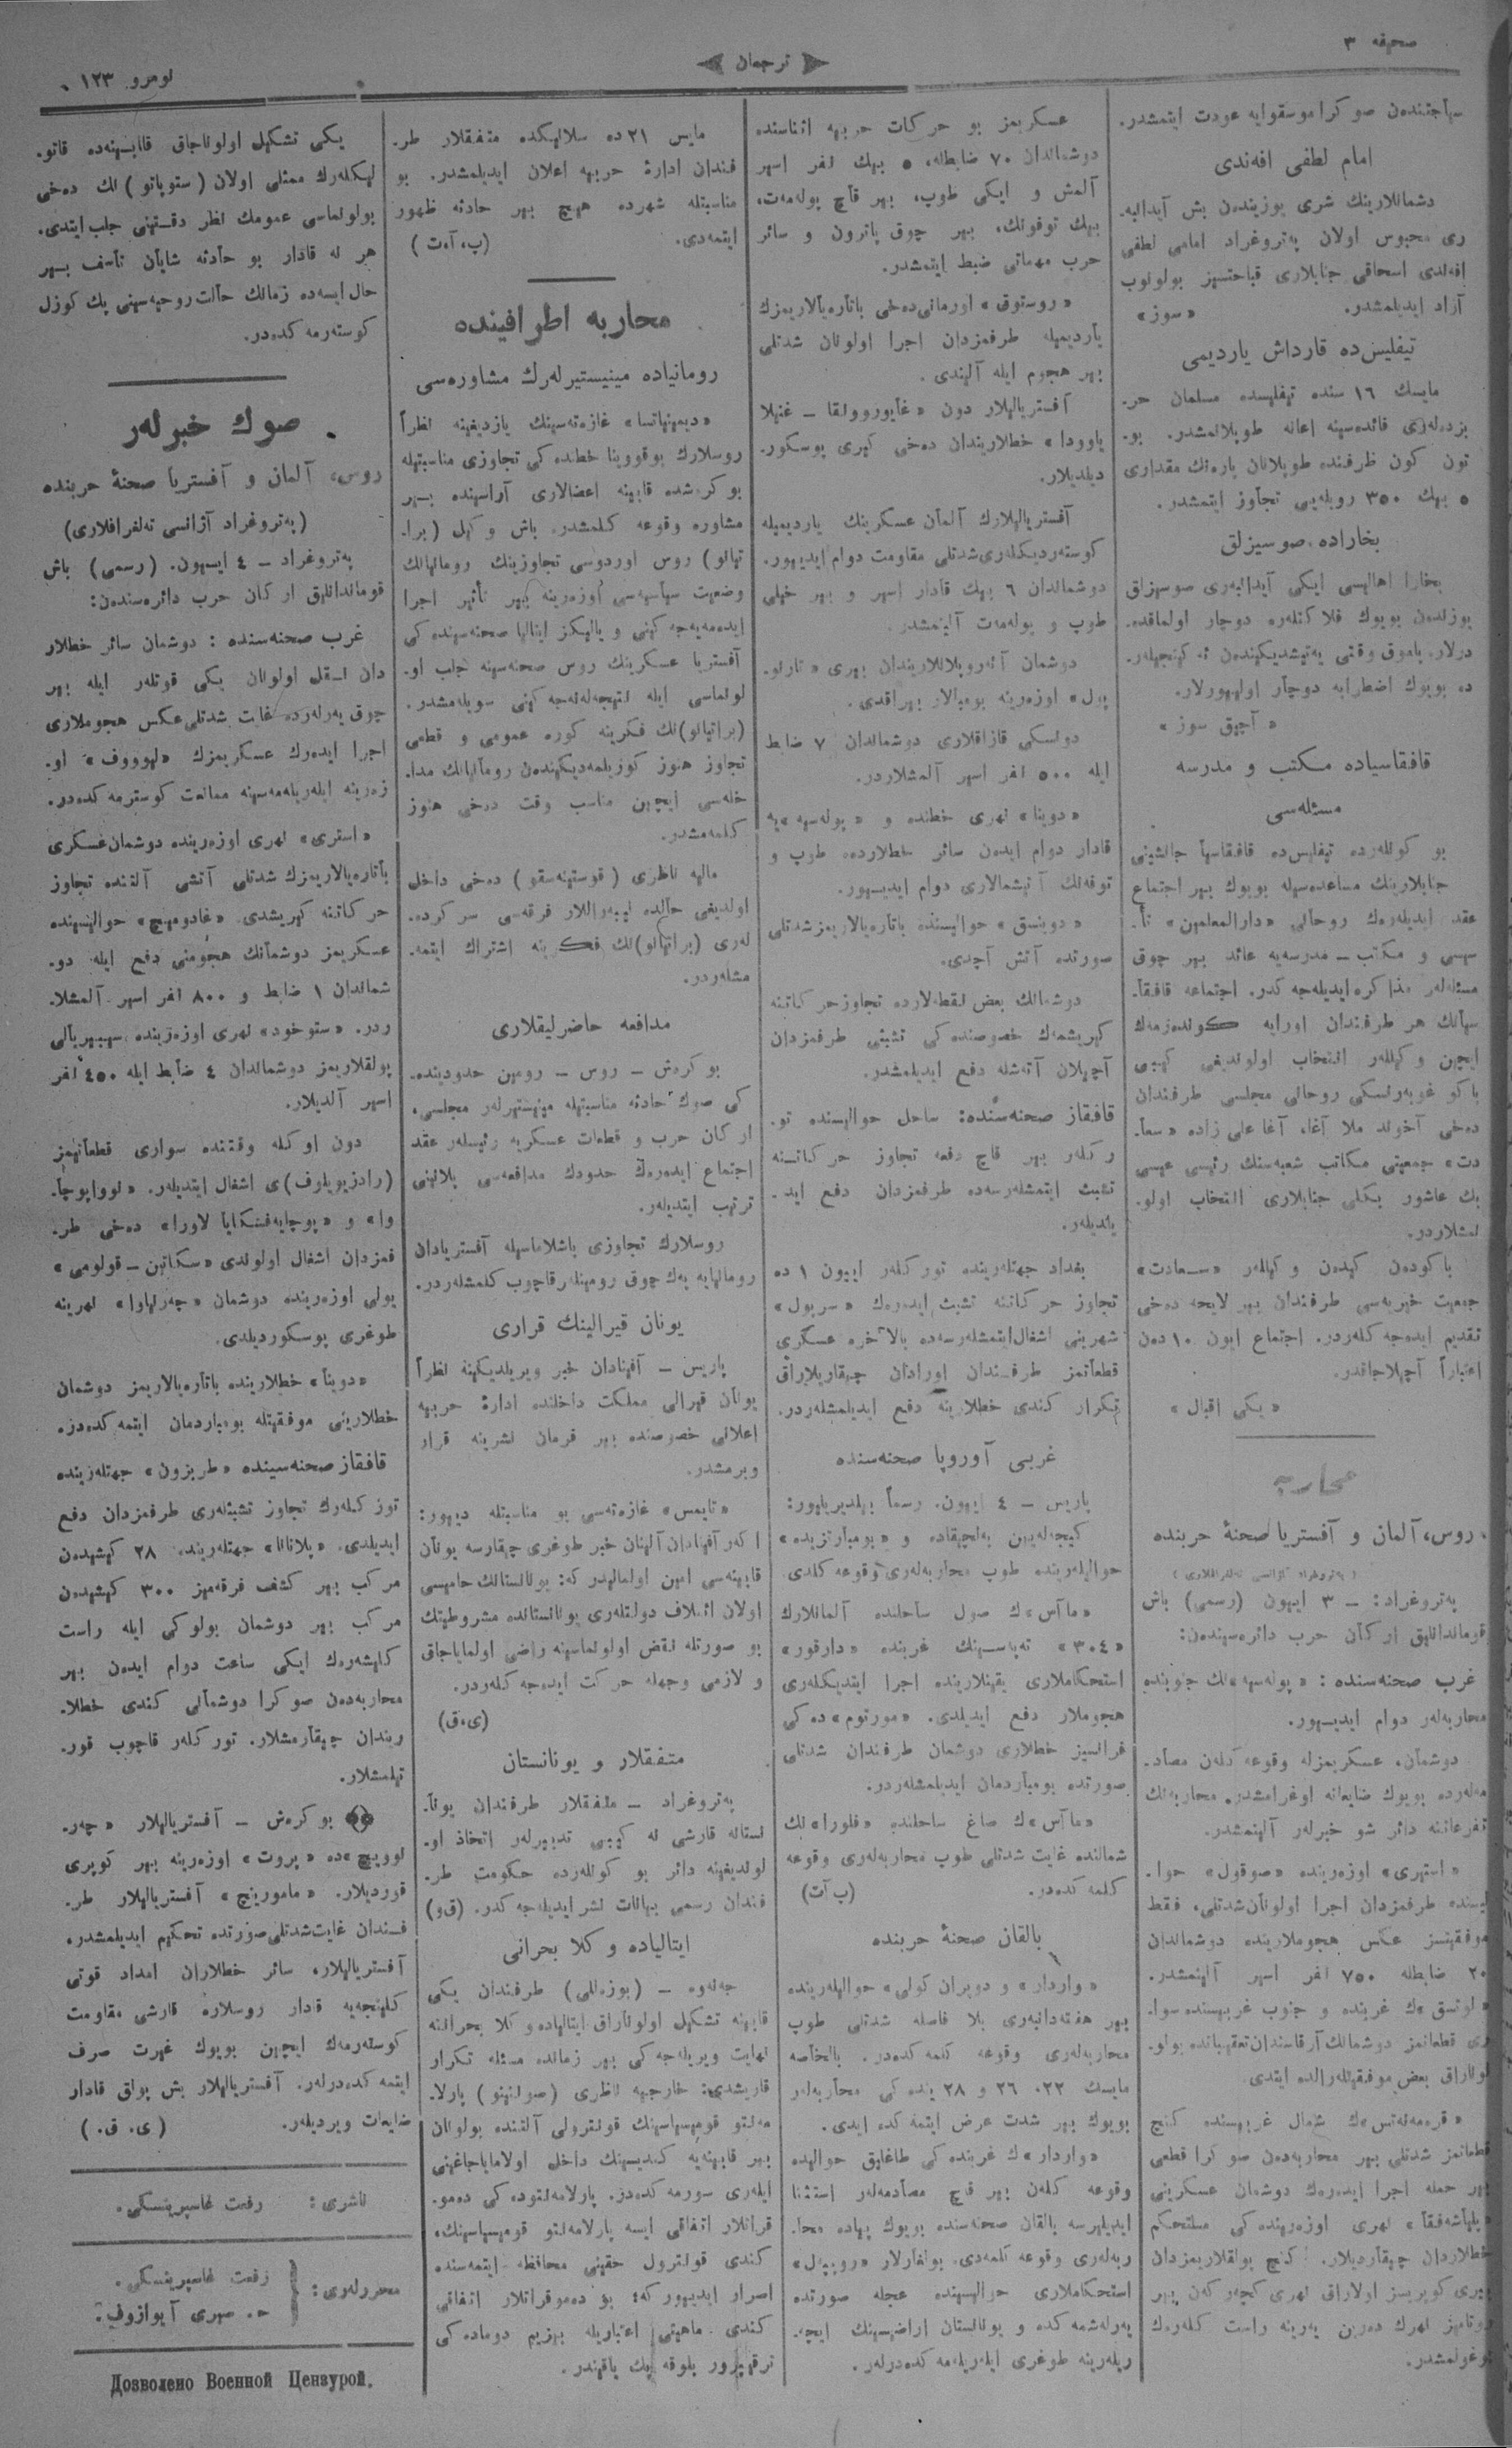 صحيفه ٣
ترجمان
نومرو ١٢٣
سياحتندن صوكرا موسقوايه عودت ايتمشدر.
امام لطفى افه‌ندى
دشمانلارينك شرى يوزيندن بش آيدانبه‌
رى محبوس اولان په‌تروغراد امامى لطفى
افه‌ندى اسحاقى جنابلارى قباحتسز بولونوب
آزاد ايديلمشدر. «سوز»
تيفليس‌ده قارداش يارديمى
مايسك ١٦ سنده تيفليسده مسلمان حر-
بزده‌لرى فائده‌سينه اعانه طوپلانمشدر. بو-
تون كون ظرفنده طوپلانان پاره‌نك مقدارى
٥ بيك ٣٥٠ روبله‌يى تجاوز ايتمشدر.
بخاراده صوسيزلق
بخارا اهاليسى ايكى آيدانبه‌رى صوسزلق
يوزندن بويوك فلاكتلره دوچار اولماقده-
ده بويوك اضطرابه دوچار اوليورلار.
«آچيق سوز»
قافقاسياده مكتب و مدرسه
مسئله‌سى
بو كونلرده تيفليس‌ده قافقاسيا جانشينى
جنابلارينك مساعده‌سيله بويوك بير اجتماع
عقد ايديله‌رك روحانى «دارالمعلمين» تأ-
سيسى و مكاتب - مدرسه‌يه عائد بير چوق
مسئله‌لر مذاكره ايديله‌جه‌كدر. اجتماعه قافقا-
سيانك هر طرفندان اورايه كونده‌رمه‌ك
ايچين وكيللر انتخاب اولونديغى كيبى
باكو غوبه‌رنسكى روحانى مجلسى طرفندان
دخى آخوند ملا آغا، آغا على زاده «سعا-
دت» جمعيتى مكاتب شعبه‌سنك رئيسى عيسى
بك عاشور بكلى جنابلارى انتخاب اولو-
نمشلاردر.
باكودن كيدن وكيللر «سعادت»
جمعيت خيريه‌سى طرفندان بير لايحه دخى
تقديم ايده‌جه‌كلردر. اجتماع ايون ١٠ دن
اعتباراً آچيلاجاقدر.
«يكى اقبال»
محاربه
روس، آلمان و آفستريا صحنهٔ حربنده
(په‌تروغراد آژانسى ته‌لغرافلارى)
په‌تروغراد: - ٣ ايون (رسمى) باش
قوماندانلق اركان حرب دائره‌سيندن:
غرب صحنه‌سنده: «پوله‌سيه»نك جنوبنده
محاربه‌لر دوام ايديور.
دوشمان، عسكريمزله وقوعه كلن مصاد-
مه‌لرده بويوك ضايعاته اوغرامشدر. محاربه‌نك
تفرعاتنه دائر شو خبرلر آلينمشدر.
«استرى» اوزه‌رينده «صوقول» حوا-
ليسنده طرفمزدان اجرا اولونان شدتلى، فقط
موفقيتسز عكس هجوملارينده دوشماندان
٢٠ ضابطله ٧٥٠ نفر اسير آلينمشدر.
«لوتسق»ك غربنده و جنوب غربيسنده سوا-
رى قطعاتمز دوشمانك آرقاسندان تعقيباتده بولو-
نولاراق بعض موفقيتلر الده ايتدى.
«قره‌مه‌نه‌تس»ك شمال غربيسنده كنج
قطعاتمز شدتلى بير محاربه‌دن صوكرا قطعى
بير حمله اجرا ايده‌رك دوشمان عسكرينى
«پلياشه‌فقا» نهرى اوزه‌رينده‌كى مستحكم
خطلاردان چيقارديلار. كنج پولقلاريمزدان
بيرى كوپريسز اولاراق نهرى كچه‌ركن بير
روتامز نهرك ده‌رين يه‌رينه راست كله‌رك
بوغولمشدر.
عسكريمز بو حركات حربيه اثناسنده
دوشماندان ٧٠ ضابطله، ٥ بيك نفر اسير
آلمش و ايكى طوپ، بير قاچ پوله‌مه‌ت،
بيك توفه‌نك، بير چوق پاترون و سائر
حرب مهماتى ضبط ايتمشدر.
«روستوق» اورمانى دخى باتاره‌يالاريمزك
يارديميله طرفمزدان اجرا اولونان شدتلى
بير هجوم ايله آليندى.
آفستريالیلار دون «غايوروونقا - غنيلا
ياوودا» خطلاريندان دخى كيرى پوسكور-
ديلديلار.
آفستريالیلارك آلمان عسكرينك يارديميله
كوسترديكلرى شدتلى مقاومت دوام ايديور.
دوشماندان ٦ بيك قادار اسير و بير خيلى
طوپ و پوله‌مه‌ت آلينمشدر.
دوشمان آئه‌روپلانلاريندان بيرى «تارنو-
پول» اوزه‌رينه بومبالار بيراقدى.
دونسكى قازاقلارى دوشماندان ٧ ضابط
ايله ٥٠٠ نفر اسير آلمشلاردر.
«دوينا» نهرى خطنده و «پوله‌سيه»يه
قادار دوام ايدن سائر خطلارده طوپ و
توفه‌نك آتيشمالارى دوام ايديور.
«دوينسق» حواليسنده باتاره‌يالاريمز شدتلى
صورتده آتش آچدى.
دوشمانك بعض نقطه‌لارده تجاوز حركاتنه
كيريشمك خصوصنده‌كى تشبثى طرفمزدان
آچيلان آتشله دفع ايديلمشدر.
قافقاز صحنه‌سنده: ساحل حواليسنده تو-
ركلر بير قاچ دفعه تجاوز حركاتنه
تشبث ايتمشلرسه‌ده طرفمزدان دفع ايد-
يلديلر.
بغداد جهتلرينده توركلر ايون ١ ده
تجاوز حركاتنه تشبث ايده‌رك «سرپول»
شهرينى اشغال ايتمشلرسه‌ده بالآخره عسكرى
قطعاتمز طرفندان اورادان چيقاريلاراق
تكرار كندى خطلارينه دفع ايديلمشلردر.
غربى آوروپا صحنه‌سنده
پاريس - ٤ ايون. رسماً بيلديريليور:
كيجه‌له‌ين بلچيقاده و «بومبارتزيده»
حواليلرينده طوپ محاربه‌لرى وقوعه كلدى.
«ماآس»ك صول ساحلنده آلمانلارك
«٣٠٤» تپه‌سينك غربنده «دارقور»
استحكاملارى يقينلارينده اجرا ايتديكلرى
هجوملار دفع ايديلدى. «مورتوم»ده‌كى
فرانسيز خطلارى دوشمان طرفندان شدتلى
صورتده بومباردمان ايديلمشلردر.
«ماآس»ك صاغ ساحلنده «فلورا»نك
شمالنده غايت شدتلى طوپ محاربه‌لرى وقوعه
كلمه‌كده‌در. (پ آت)
بالقان صحنهٔ حربنده
«واردار» و دويران كولى» حواليلرينده
بير هفته‌دانبه‌رى بلا فاصله شدتلى طوپ
محاربه‌لرى وقوعه كلمه‌كده‌در. بالخاصه
مايسك ٢٢، ٢٦ و ٢٨ ينده‌كى محاربه‌لر
بويوك بير شدت عرض ايتمه‌كده ايدى.
«واردار»ك غربنده‌كى طاغليق حواليده
وقوعه كلن بير قاچ مصادمه‌لر استثنا
ايديليرسه بالقان صحنه‌سنده بويوك پياده محا-
ربه‌لرى وقوعه كلمه‌دى. بولغارلار «روپيل»
استحكاملارى حواليسنده عجله صورتده
يرله‌شمه‌كده و يونانستان اراضيسينك ايچه-
ريلرينه طوغرى ايله‌ريله‌مه‌كده‌درلر.
مايس ٢١ده سلانيكده متفقلار طر-
فندان ادارهٔ حربيه اعلان ايديلمشدر. بو
مناسبتله شهرده هيچ بير حادثه ظهور
ايتمه‌دى. (پ،آ،ت)
محاربه اطرافينده
رومانياده مينيستيرلرك مشاوره‌سى
«ديمينياتسا» غازه‌ته‌سينك يازديغينه نظراً
روسلارك بوقووينا خطنده‌كى تجاوزى مناسبتيله
بوكرشده قابينه اعضالارى آراسينده بير
مشاوره وقوعه كلمشدر. باش وكيل (برا-
تيانو) روس اوردوسى تجاوزينك رومانيانك
وضعيت سياسيه‌سى اوزه‌رينه بير تأثير اجرا
ايده‌مه‌يه‌جه‌كينى و يالكز ايتاليا صحنه‌سينده‌كى
آفستريا عسكرينك روس صحنه‌سينه جلب او-
لونماسى ايله نتيجه‌له‌نه‌جه‌كينى سويله‌مشدر.
(براتيانو)نك فكرينه كوره عمومى و قطعى
تجاوز هنوز كوزيلمه‌ديكيندن رومانيانك مدا-
خله‌سى ايچين مناسب وقت دخى هنوز
كلمه‌مشدر.
ماليه ناظرى (قوستينه‌سقو) دخى داخل
اولديغى حالده ليبه‌راللار فرقه‌سى سركرده-
لرى (براتيانو)نك فكرينه اشتراك ايتمه-
مشلردر.
مدافعه حاضرليقلارى
بوكرش - روس - رومين حدودينده-
كى صوك حادثه مناسبتيله مينيستيرلر مجلسى،
اركان حرب و قطعات عسكريه رئيسلر عقد
اجتماع ايده‌رك حدودك مدافعه‌سى پلانينى
ترتيب ايتديلر.
روسلارك تجاوزى باشلاماسيله آفستريادان
رومانيايه په‌ك چوق رومينلر قاچوب كلمشلردر.
يونان قيرالينك قرارى
پاريس - آفينادان خبر ويريلديكينه نظراً
يونان قيرالى مملكت داخلنده ادارهٔ حربيه
اعلانى خصوصنده بير فرمان نشرينه قرار
ويرمشدر.
«تايمس» غازه‌ته‌سى بو مناسبتله ديور:
اكر آفينادان آلينان خبر طوغرى چيقارسه يونان
قابينه‌سى امين اولماليدر كه: يونانستانك حاميسى
اولان ائتلاف دولتلرى يونانستانده مشروطيتك
بو صورتله نقض اولونماسينه راضى اولماياجاق
و لازمى وجهله حركت ايده‌جه‌كلردر.
(ى،ق)
متفقلار و يونانستان
په‌تروغراد - متفقلار طرفندان يونا-
نستانه قارشى نه كيبى تدبيرلر اتخاذ او-
لونديغينه دائر بو كونلرده حكومت طر-
فندان رسمى بيانات نشر ايديله‌جه‌كدر. (ق،و)
ايتالياده وكلا بحرانى
جه‌نه‌وه - (بوزه‌للى) طرفندان يكى
قابينه تشكيل اولوناراق ايتالياده وكلا بحراننه
نهايت ويريله‌جه‌كى بير زمانده مسئله تكرار
قاريشدى: خارجيه ناظرى (صونينو) پارلا-
مه‌نتو قوميسياسينك قونترولى آلتنده بولونان
بير قابينه‌يه كنديسينك داخل اولاماياجاغينى
ايله‌رى سورمه‌كده‌در. پارلامه‌نتوده‌كى ده‌مو-
قراتلار اتفاقى ايسه پارلامه‌نتو قوميسياسينك،
كندى قونترول حقينى محافظه ايتمه‌سنده
اصرار ايديور كه؛ بو ده‌موقراتلار اتفاقى
كندى ماهيتى اعتباريله بيزيم دوماده‌كى
ترقيپرور بلوقه پك ياقيندر.
يكى تشكيل اولوناجاق قابينه‌ده قاتو-
ليكلرك ممثلى اولان (ستوپاتو)نك دخى
بولونماسى عمومك نظر دقتينى جلب ايتدى.
هر نه قادار بو حادثه شايان تأسف بير
حال ايسه‌ده زمانك حالت روحيه‌سينى پك كوزل
كوسترمه‌كده‌در.
صوك خبرلر
روس، آلمان و آفستريا صحنهٔ حربنده
(په‌تروغراد آژانسى ته‌لغرافلارى)
په‌تروغراد - ٤ ايون. (رسمى) باش
قوماندانلق اركان حرب دائره‌سندن:
غرب صحنه‌سنده: دوشمان سائر خطلار
دان نقل اولونان يكى قوتلر ايله بير
چوق يرلرده غايت شدتلى عكس هجوملارى
اجرا ايده‌رك عسكريمزك «لهوووف» او-
زه‌رينه ايله‌ريله‌مه‌سينه ممانعت كوسترمه‌كده‌در.
«استرى» نهرى اوزه‌رينده دوشمان عسكرى
باتاره‌يالاريمزك شدتلى آتشى آلتنده تجاوز
حركاتنه كيريشدى. «غادوميچ» حواليسينده
عسكريمز دوشمانك هجومنى دفع ايله دو-
شماندان ١ ضابط و ٨٠٠ نفر اسير آلمشلا-
ردر. «ستوخود» نهرى اوزه‌رينده سيبيريالى
پولقلاريمز دوشماندان ٤ ضابط ايله ٤٥٠ نفر
اسير آلديلار.
دون اوكله وقتنده سوارى قطعاتيمز
(رادزيويلوف)ى اشغال ايتديلر. «نووا پوچا-
وا» و «پوچايه‌فسكايا لاورا» دخى طر-
فمزدان اشغال اولوندى «سكاتين - قولومى»
يولى اوزه‌رينده دوشمان «چه‌رنياوا» نهرينه
طوغرى پوسكورديلدى.
«دوينا» خطلارينده باتاره‌يالاريمز دوشمان
خطلارينى موفقيتله بومباردمان ايتمه‌كده‌در.
قافقاز صحنه‌سينده «طربزون» جهتلرينده
توركلرك تجاوز تشبثلرى طرفمزدان دفع
ايديلدى. «پلاتانا» جهتلرينده ٢٨ كيشيدن
مركب بير كشف فرقه‌ميز ٣٠٠ كيشيدن
مركب بير دوشمان بولوكى ايله راست
كليشه‌رك ايكى ساعت دوام ايدن بير
محاربه‌دن صوكرا دوشمانى كندى خطلا-
ريندان چيقارمشلار. توركلر قاچوب قور-
تيلمشلار.
بوكرش - آفستريالیلار «چه‌ر-
نوويچ»ده «پروت» اوزه‌رينه بير كوپرى
قورديلار. «مامورنيچ» آفستريالیلار طر-
فندان غايت شدتلى صورتده تحكيم ايديلمشدر.
آفستريالیلار، سائر خطلاران امداد قوتى
كلينجه‌يه قادار روسلاره قارشى مقاومت
كوسترمه‌ك ايچين بويوك غيرت صرف
ايتمه‌كده‌درلر. آفستريالیلار بش پولق قادار
ضايعات ويرديلر. (ى. ق.)
ناشرى: رفعت غاسپرينسكى.
محررلرى: رفعت غاسپرينسكى.
ح. صبرى آيوازوف.
Дозволено Военной Цензурой.